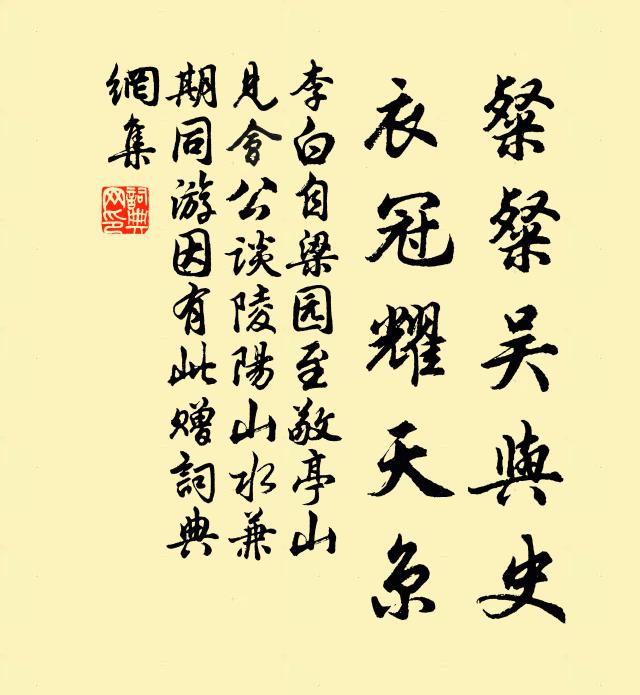 粲粲吴與史
衣冠耀天京
李白自梁园至敬亭山
見會公谈陵陽山水兼
期同游因有此贈詞典
網集
詞典
网印